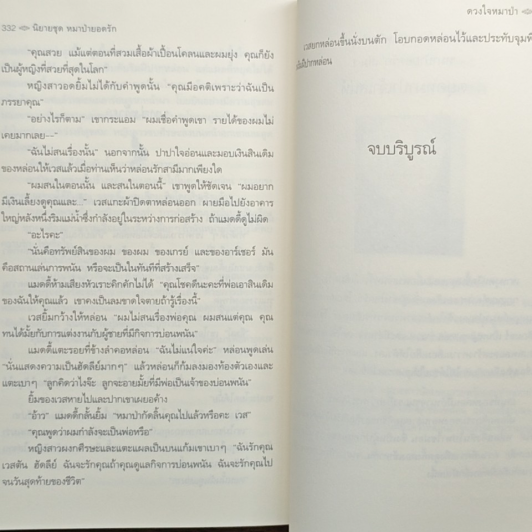 332 นิยายชุด หมาป่ายอดรัก
"คุณสวย แม้แต่ตอนที่สวมเสื้อผ้าเปื้อนโคลนและผมยุ่ง คุณก็ยัง
เป็นผู้หญิงที่สวยที่สุดในโลก"
หญิงสาวอดยิ้มไม่ได้กับคำพูดนั้น "คุณมีอคติเพราะว่าฉันเป็น
ภรรยาคุณ"
"อย่างไรก็ตาม" เขากระแอม "ผมเชื่อคำพูดเขา รายได้ของผมไม่
เคยมากเลย--"
"ฉันไม่สนเรื่องนั้น" นอกจากนั้น ปาปาใจอ่อนและมอบเงินสินเดิม
ของหล่อนให้เวสแล้วเมื่อท่านเห็นว่าหล่อนรักสามีมากเพียงใด
"ผมสนในตอนนั้น และสนในตอนนี้" เขาพูดให้ชัดเจน "ผมอยาก
มีเงินเลี้ยงดูคุณและ..." เวสแกะผ้าปิดตาหล่อนออก ผายมือไปยังอาคาร
ใหญ่หลังหนึ่งริมแม่น้ำซึ่งกำลังอยู่ในระหว่างการก่อสร้าง ถ้าแมดดี้ดูไม่ผิด
"อะไรคะ"
"นั่นคือทรัพย์สินของผม ของผม ของเกรย์ และของอาร์เชอร์ มัน
คือสถานเล่นการพนัน หรือจะเป็นในทันทีที่สร้างเสร็จ"
แมดดี้ห้ามเสียงหัวเราะคิกคักไม่ได้ "คุณโชคดีนะคะที่พ่อเอาสินเดิม
ของฉันให้คุณแล้ว เขาคงเป็นลมขาดใจตายถ้ารู้เรื่องนี้"
เวสยิ้มกว้างให้หล่อน "ผมไม่สนเรื่องพ่อคุณ ผมสนแต่คุณ คุณ
ทนได้มัยกับการแต่งงานกับผู้ชายที่มีกิจการบ่อนพนัน"
แมดดี้แตะรอยที่ข้างลำคอหล่อน "ฉันไม่แน่ใจค่ะ" หล่อนพูดเล่น
"นั่นแสดงความเป็นฮัตลีย์มากๆ" แล้วหล่อนก็ก้มลงมองท้องตัวเองและ
แตะเบาๆ "ลูกคิดว่าไงจ๊ะ ลูกจะอายมัยที่มีพ่อเป็นเจ้าของบ่อนพนัน"
ยิ้มของเวสหายไปและปากเขาเผยอค้าง
"อ้าว" แมดดี้กลั้นยิ้ม "หมาป่ากัดลิ้นคุณไปแล้วหรือคะ เวส"
"คุณพูดว่าผมกำลังจะเป็นพ่อหรือ"
หญิงสาวผงกศีรษะและแตะแผลเป็นบนแก้มเขาเบาๆ "ฉันรักคุณ
เวสตัน ฮัตลีย์ ฉันจะรักคุณถ้าคุณดูแลกิจการบ่อนพนัน ฉันจะรักคุณไป
จนวันสุดท้ายของชีวิต"
ดวงใจหมาป่า
เวสยกหล่อนขึ้นนั่งบนตัก โอบกอดหล่อนไว้และประทับจุมพิ
ริมฝีปากหล่อน
จบบริบูรณ์